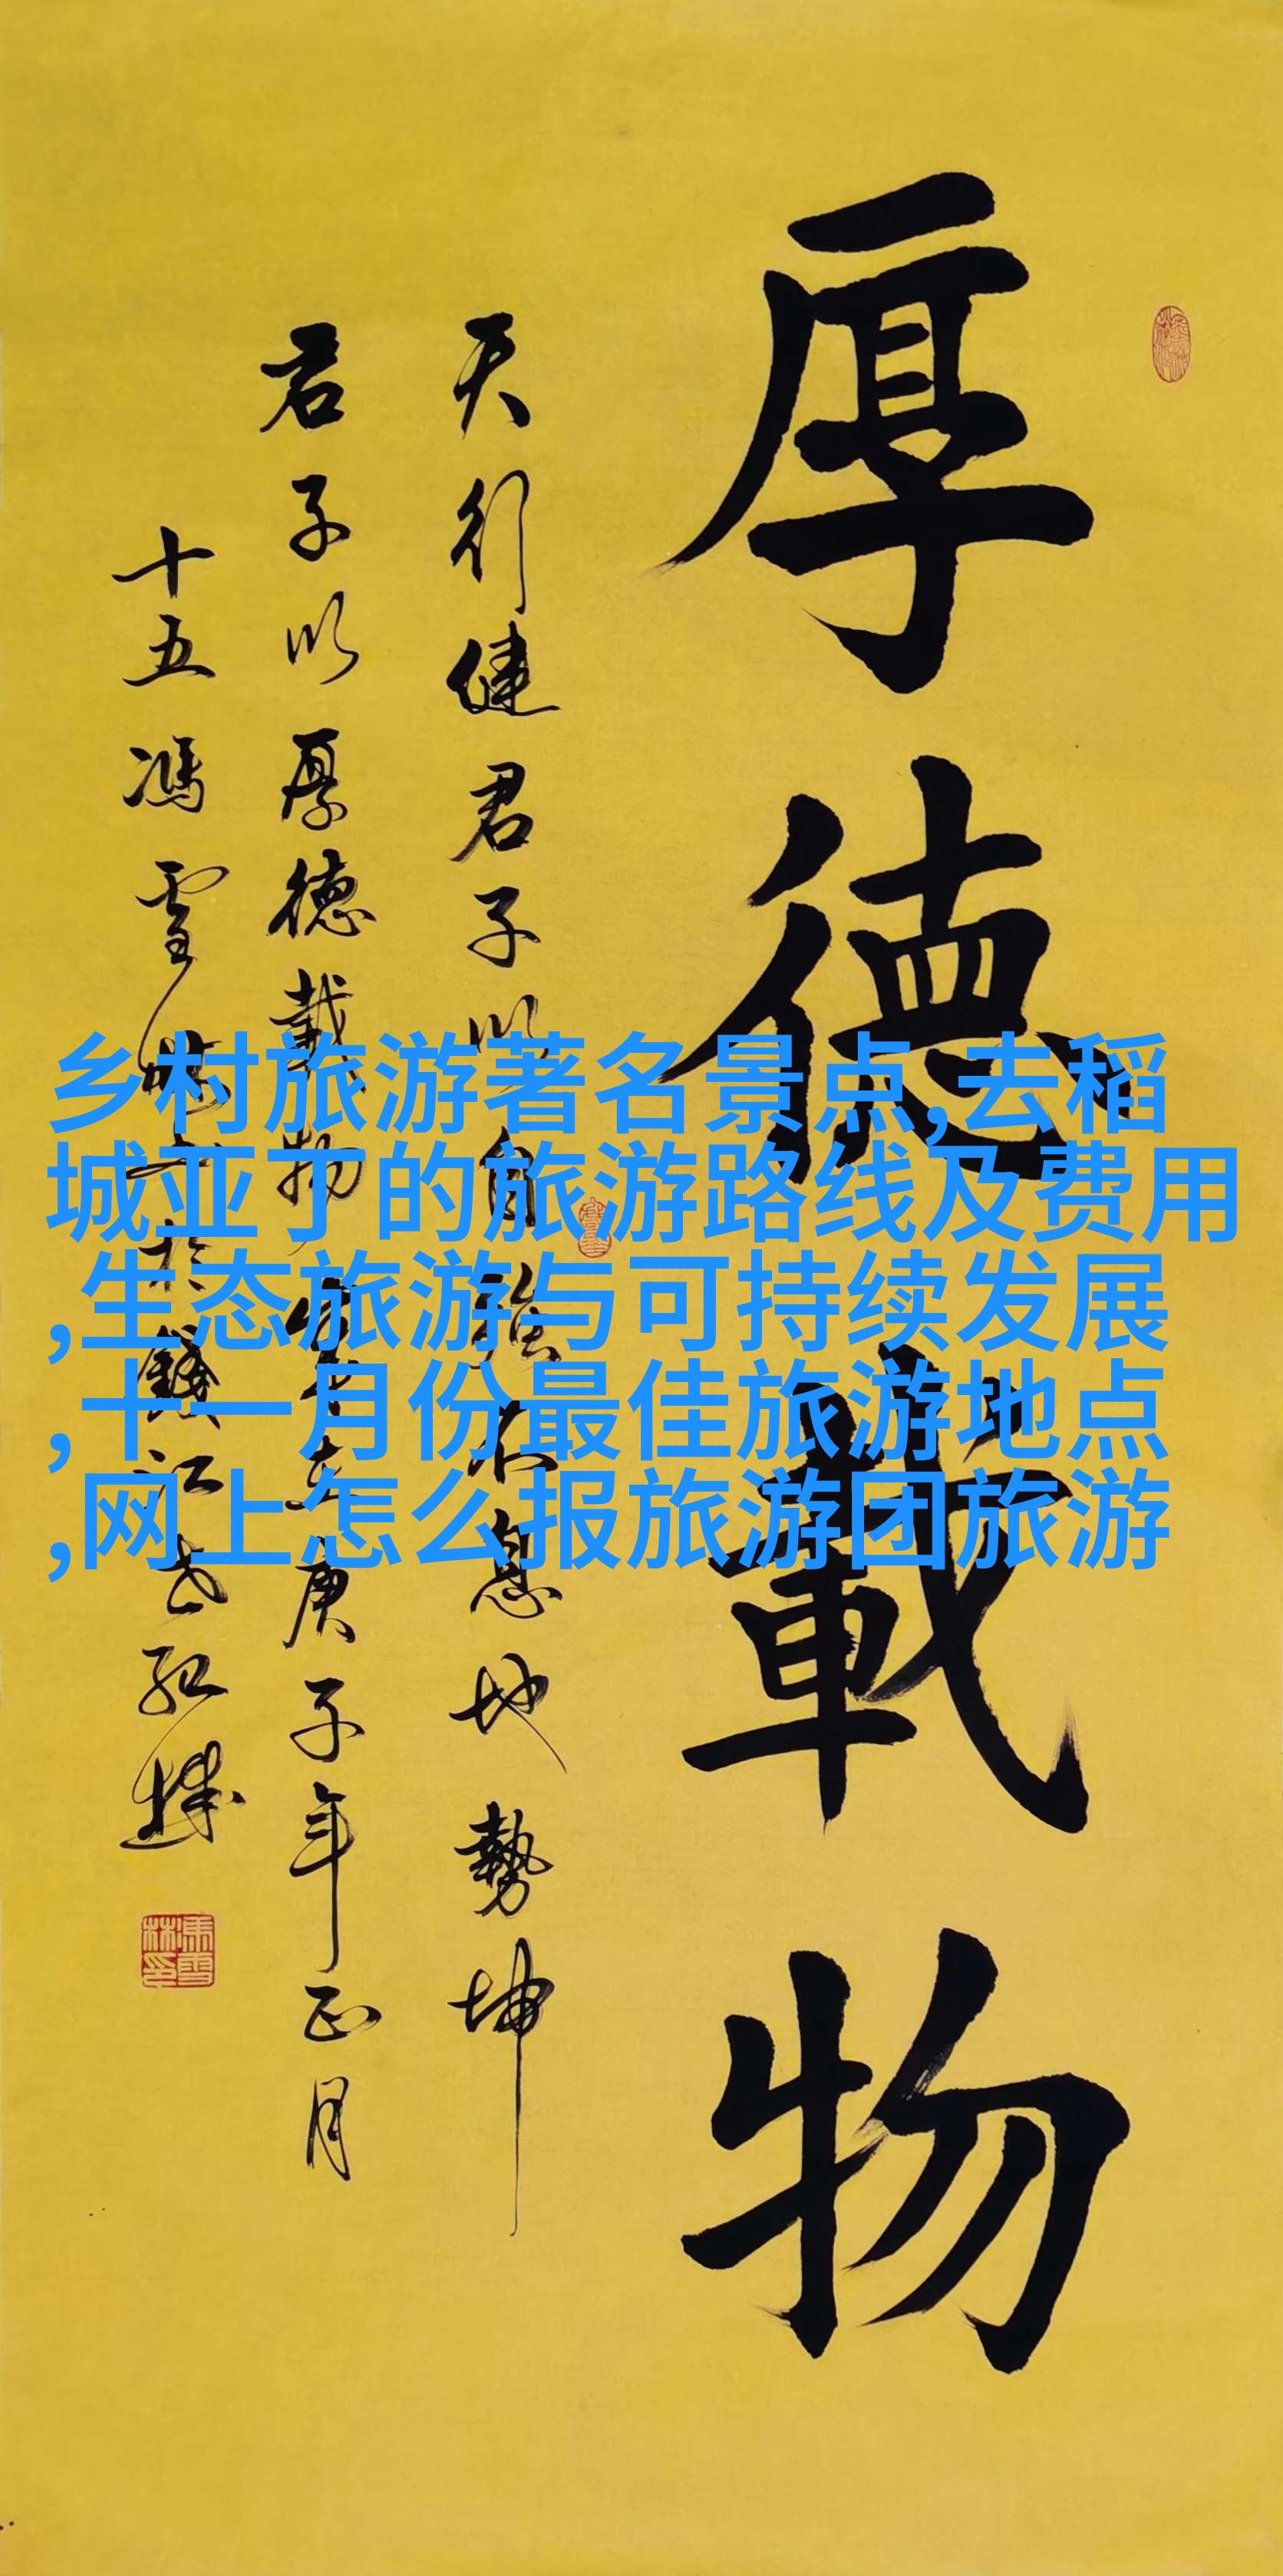 厚德載物
天行健君子以自強不息地勢坤
君子以厚德載物 歲在庚子年正月
十五馮雪林書於錢江
乡村旅游著名景点,去稻
城亚丁的旅游路线及费用
,生态旅游与可持续发展
,十一月份最佳旅游地点
,网上怎么报旅游团旅游
馮雪林印